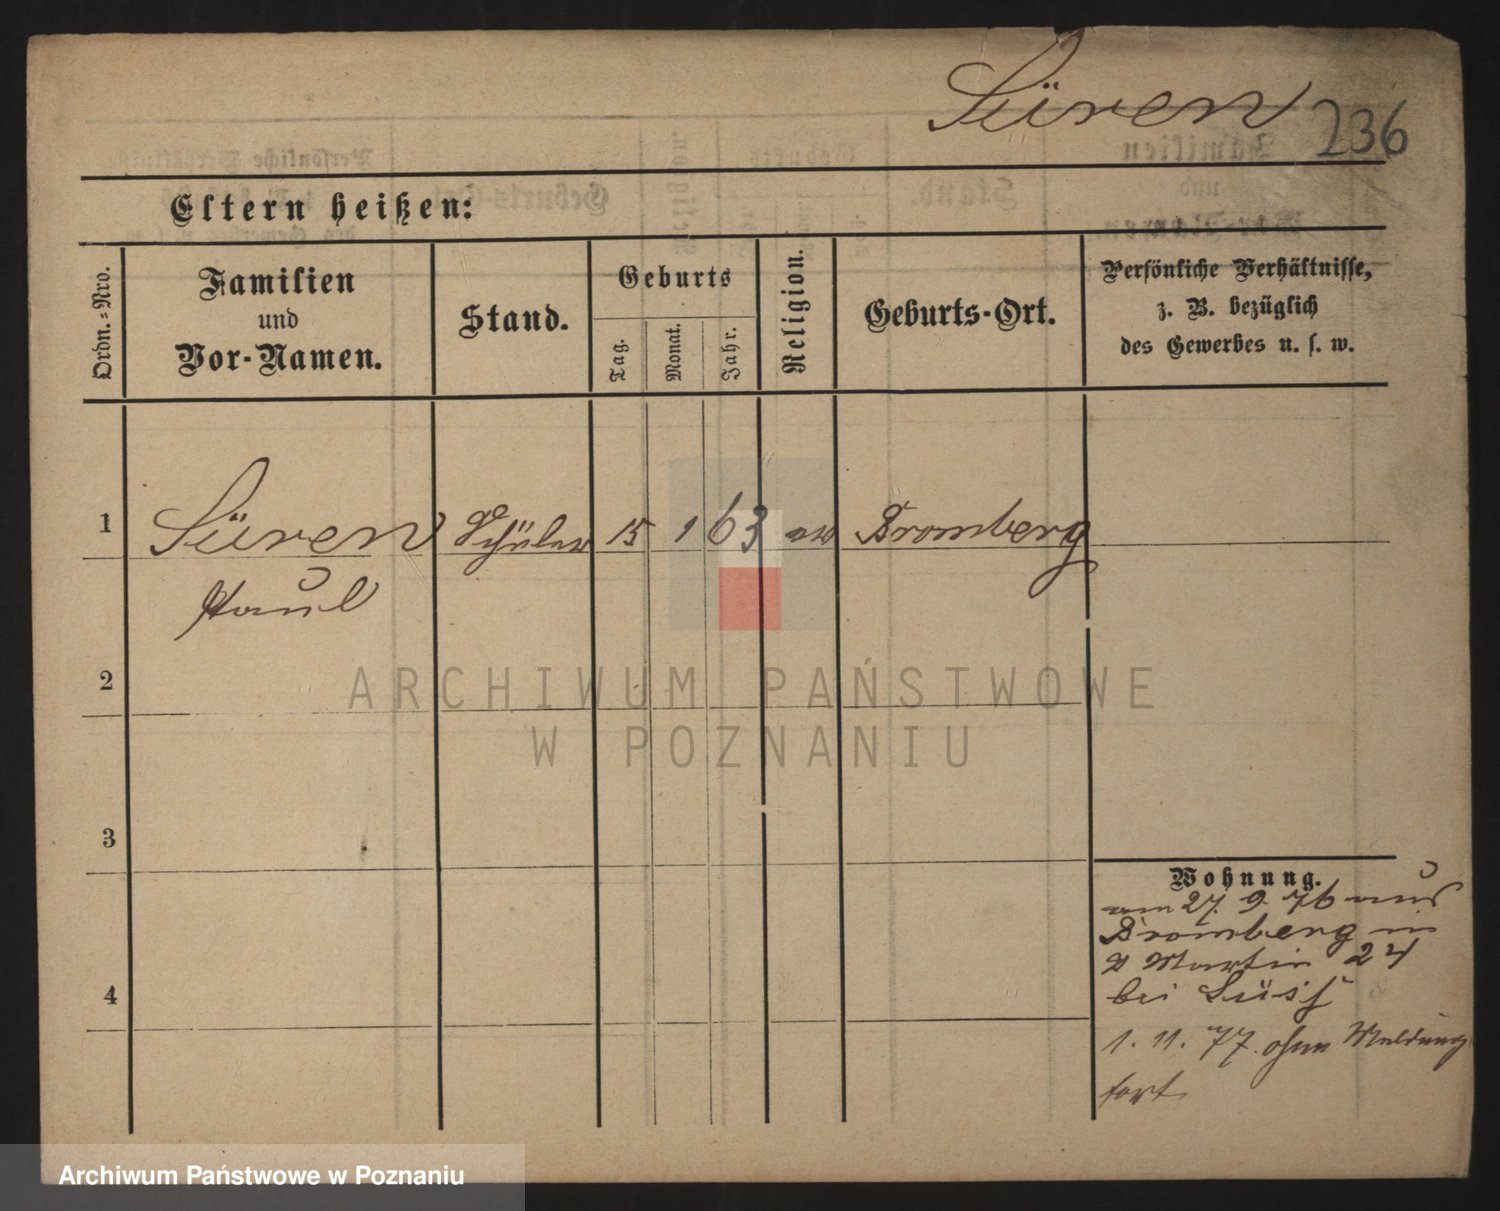 Süren 236
Eltern heißen:
Ordn.-Nro.
Familien
und
Vor-Namen.
Stand.
Geburts
Tag.
Monat.
Jahr.
Religion.
Geburts-Ort.
Persönliche Verhältnisse,
z. B. bezüglich
des Gewerbes u. s. w.
1 Süren Schüler 15 1 63 ev Bromberg
Paul
2
3
4
Wohnung.
am 27. 9. 76 aus
Bromberg in
St Martin 24
bei Süss
1. 11. 77. ohne Meldung
fort
ARCHIWUM PAŃSTWOWE
W POZNANIU
Archiwum Państwowe w Poznaniu